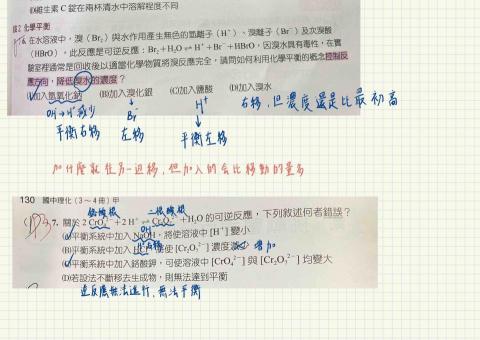 (D)維生素C錠在兩杯清水中溶解程度不同
題2 化學平衡
6. 在水溶液中，溴（Br₂）與水作用產生無色的氫離子（H⁺）、溴離子（Br⁻）及次溴酸
（HBrO），此反應是可逆反應：Br₂＋H₂O⇌H⁺＋Br⁻＋HBrO，因溴水具有毒性，在實
驗室裡通常是回收後以適當化學物質將溴反應完全，請問如何利用化學平衡的概念控制反
應方向，降低溴水的濃度？
(A)加入氫氧化鈉 (B)加入溴化銀 (C)加入鹽酸 (D)加入溴水
OH⁻→H⁺減少
平衡右移
Br⁻
左移
H⁺
平衡左移
右移，但濃度還是比最初高
加什麼就往另一邊移，但加入的會比移動的量多
130 國中理化（3～4冊）甲
鉻酸根 二鉻酸根
7. 關於 2 CrO₄²⁻＋2 H⁺⇌Cr₂O₇²⁻＋H₂O 的可逆反應，下列敘述何者錯誤？
(A)平衡系統中加入 NaOH，將使溶液中 [H⁺] 變小
OH⁻
右移
使 [Cr₂O₇²⁻] 濃度減少 增加
(C)平衡系統中加入鉻酸鉀，可使溶液中 [CrO₄²⁻] 與 [Cr₂O₇²⁻] 均變大
(D)若設法不斷移去生成物，則無法達到平衡
逆反應無法進行，無法平衡